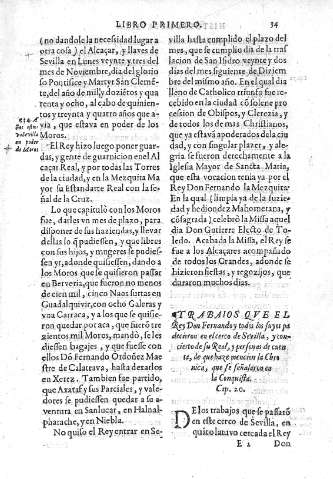 LIBRO PRIMERO. 34
(no dandole la necessidad lugar a
otra cosa) el Alcaçar, y llaves de
Sevilla en Lunes veynte y tres del
mes de Noviembre, dia del glorio
so Pontifice y Martyr San Cleme-
te, del año de mil y dozientos y qua
renta y ocho, al cabo de quinien-
tos y treynta y quatro años que a-
via, que estava en poder de los
Moros.
El Rey hizo luego poner guar-
das, y gente de guarnicion en el Al
caçar Real, y por todas las Torres
de la ciudad, y en la Mezquita Ma
yor su Estandarte Real con la se-
ñal de la Cruz.
Lo que capitulò con los Moros
fue, darles un mes de plazo, para
disponer de sus haziendas, y llevar
dellas lo q̃ pudiessen, y que libres
con sus hijos, y mugeres se pudies-
sen yr, adonde quisiessen, dando a
los Moros que se quisieron passar
en Berveria, que fueron no menos
de cien mil, cinco Naos surtas en
Guadalquivir, con ocho Galeras y
una Carraca, y a los que se quisie-
ron quedar por acà, que fuerõ tre
zientos mil Moros, mandò, se les
diessen bagajes, y que fuesse con
ellos Dõ Fernando Ordoñez Mae
stre de Calatrava, hasta dexarlos
en Xerez. Tambien fue partido,
que Axataf y sus Parciales, y vale-
dores se pudiessen quedar a su a-
ventura en Sanlucar, en Halnal-
pharache, y en Niebla.
No quiso el Rey entrar en Se-
villa hasta cumplido el plazo del
mes, que se cumplio dia de la tras
lacion de San Isidro, veynte y dos
dias del mes siguiente de Diziem
bre del mismo año. En el qual dia
lleno de Catholico triunfo fue re-
cebido en la ciudad cõ solene pro
cession de Obispos, y Clerezia, y
de todos los de mas Christianos,
que ya estavã apoderados de la ciu
dad, y con singular plazer, y ale-
gria se fueron derechamente a la
Iglesia Mayor de Sancta Maria,
que esta vocacion tenia ya por el
Rey Don Fernando la Mezquita
En la qual (limpia ya de la suzie-
dad y hediondez Mahometana, y
consagrada) celebrò la Missa aquel
dia Don Gutierre Electo de To-
ledo. Acabada la Missa, el Rey se
fue a los Alcaçares acompañado
de todos los Grandes, adonde se
hizieron fiestas, y regozijos, que
duraron muchos dias.
¶ TRABAIOS QVE EL
Rey Don Fernando y todos los suyos pa
decieron en el cerco de Sevilla, y con-
cierto de su Real, y personas de cuen
ta, de que haze mencion la Chro
nica, que se señalaron en
la Conquista.
Cap. 20.
DE los trabajos que se passarõ
en este cerco de Sevilla, en
quito tuvo cercada el Rey
E 2 Don